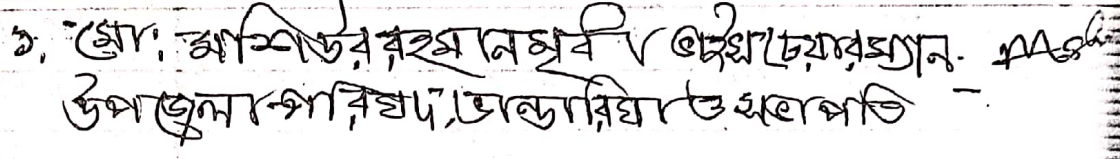 ১. মো: মশিউর রহমান মৃধা। ভাইস চেয়ারম্যান.
উপজেলা পরিষদ, ভান্ডারিয়া ও সভাপতি -